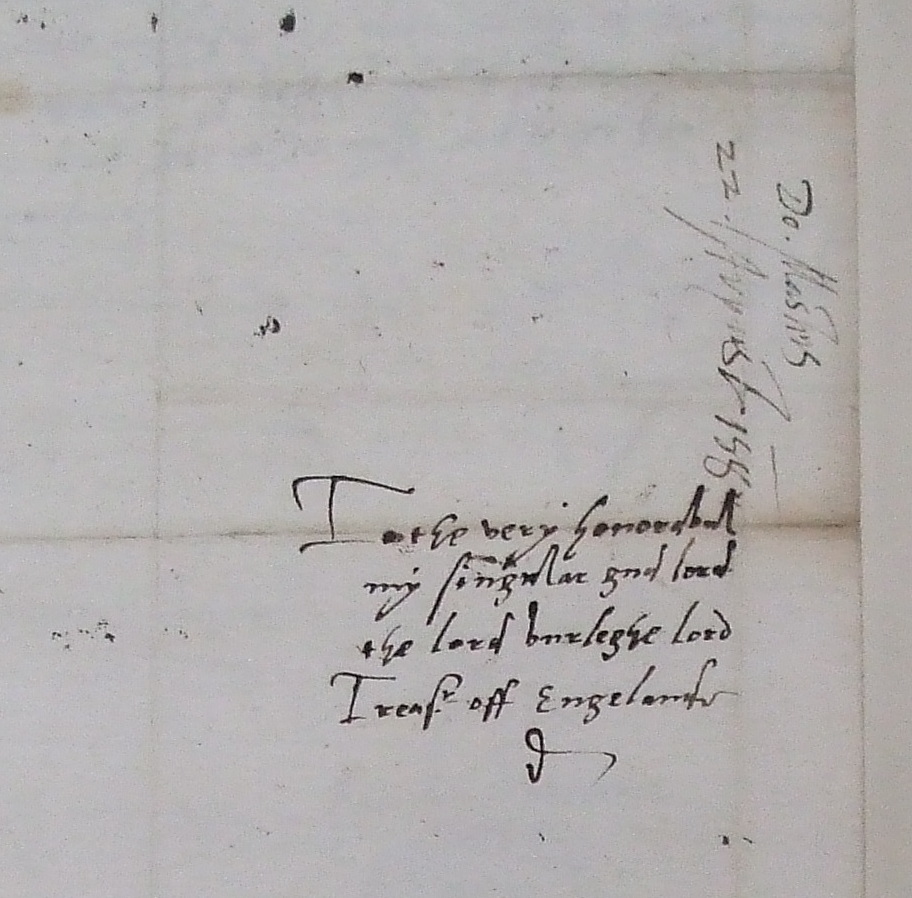 To the very honoraball
my singular gud lord
the lord burleghe lord
Treasr off Engelande
Do. Masius
22. August 158